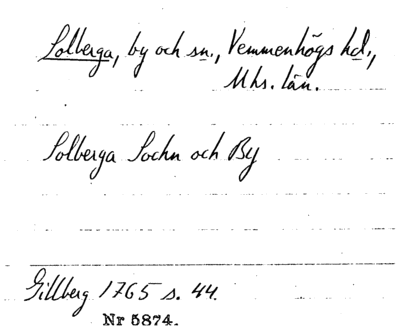 Solberga, by och sn., Vemmenhögs hd.,
Mhs. län.
Solberga Sochn och By
Gillberg 1765 s. 44.
Nr 5874.